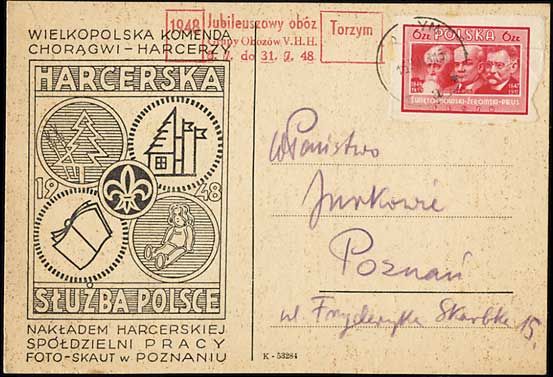 WIELKOPOLSKA KOMENDA
CHORĄGWI - HARCERZY
HARCERSKA
1948
SŁUŻBA POLSCE
NAKŁADEM HARCERSKIEJ
SPÓŁDZIELNI PRACY
FOTO-SKAUT w POZNANIU
1948 Jubileuszowy obóz
Obozów V.H.H.
7. do 31. 7. 48
Torzym
6ZŁ POLSKA 6ZŁ
ŚWIĘTOCHOWSKI-ŻEROMSKI-PRUS
Państwo
Jurkowie
Poznań
ul. Fryderyka Skarbka 15.
K - 53284